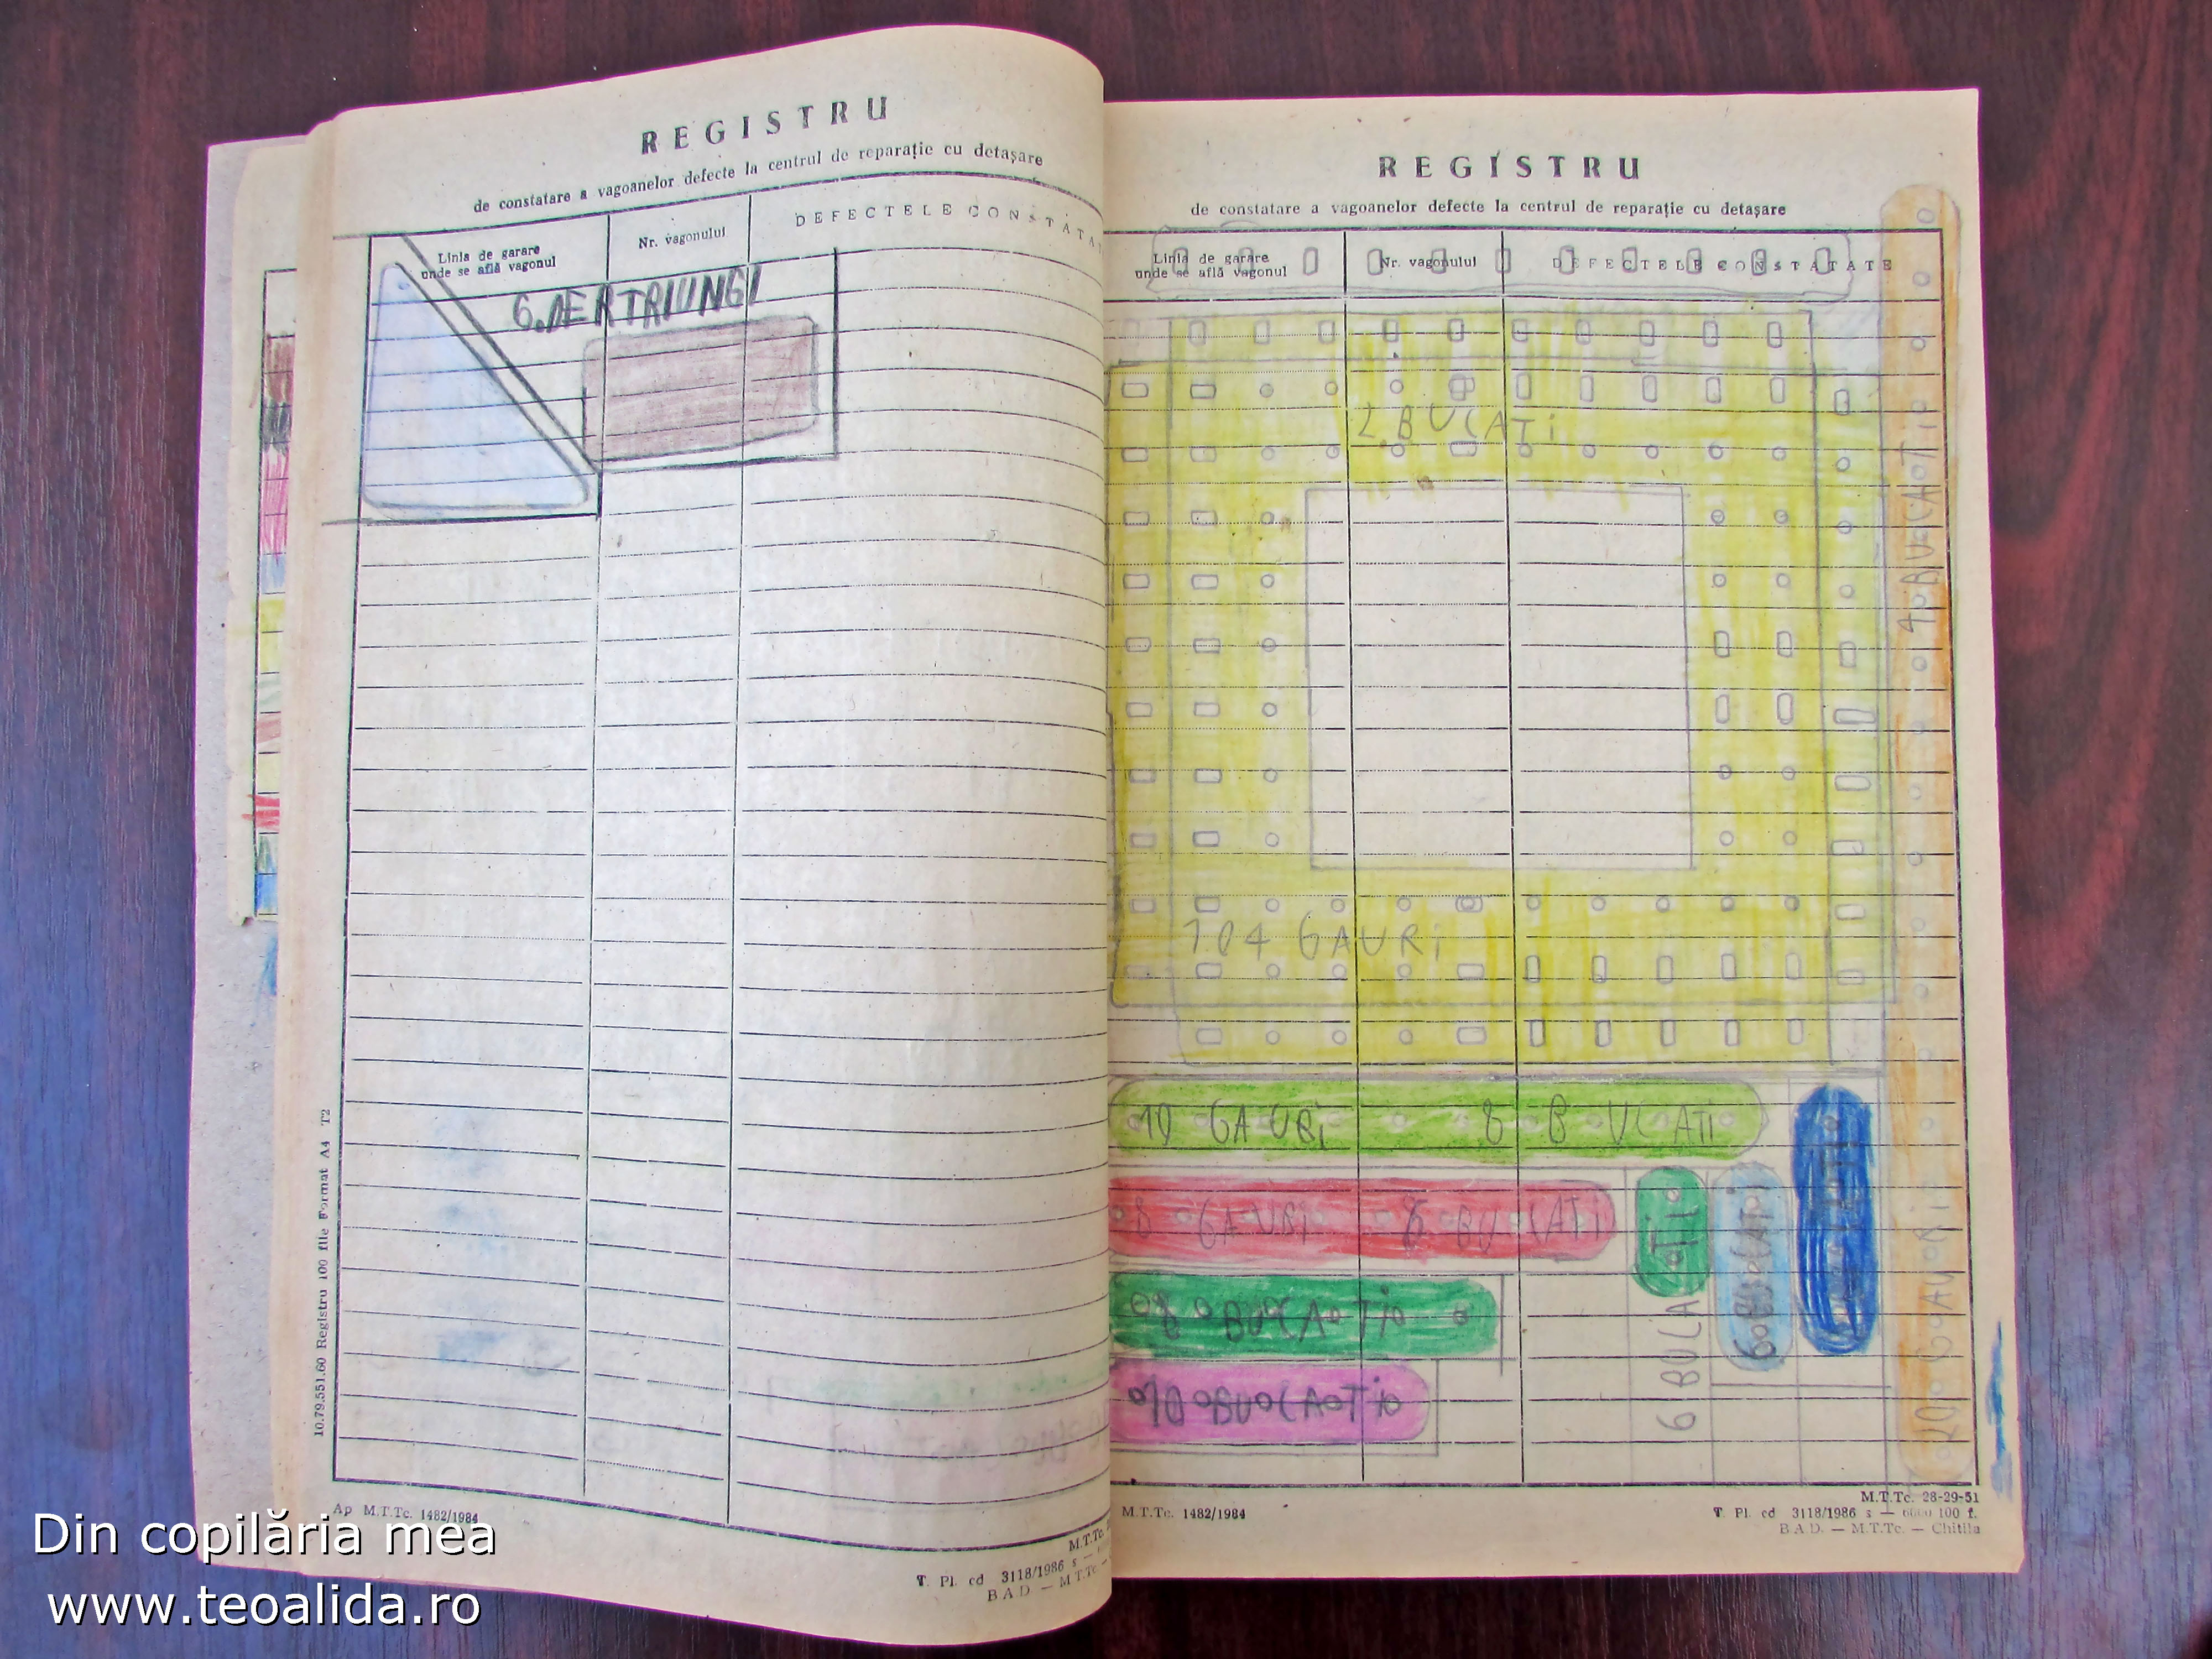 REGISTRU
de constatare a vagoanelor defecte la centrul de reparație cu detașare
Linia de garare
unde se află vagonul
Nr. vagonului
DEFECTELE CONSTATA
6.DE TRIUNGI
10.79.551.60 Registru 100 file Format A4 T2
Ap M.T.Tc. 1482/1984
M.T.Tc.
T. Pl. cd 3118/1986 s —
B.A.D. — M.T.Tc.
REGISTRU
de constatare a vagoanelor defecte la centrul de reparație cu detașare
Linia de garare
unde se află vagonul
Nr. vagonului
DEFECTELE CONSTATATE
2.BUCATi
4 BUCATi
104 GAURi
10 GAURi 8 BUCATi
8 GAURi 8 BUCATi
8 BUCATi
10 BUCATi
6 BUCATi
6 BUCATi
20 GAURi
M.T.Tc. 1482/1984
M.T.Tc. 28-29-51
T. Pl. cd 3118/1986 s — 6000 100 f.
B.A.D. — M.T.Tc. — Chitila
Din copilăria mea
www.teoalida.ro